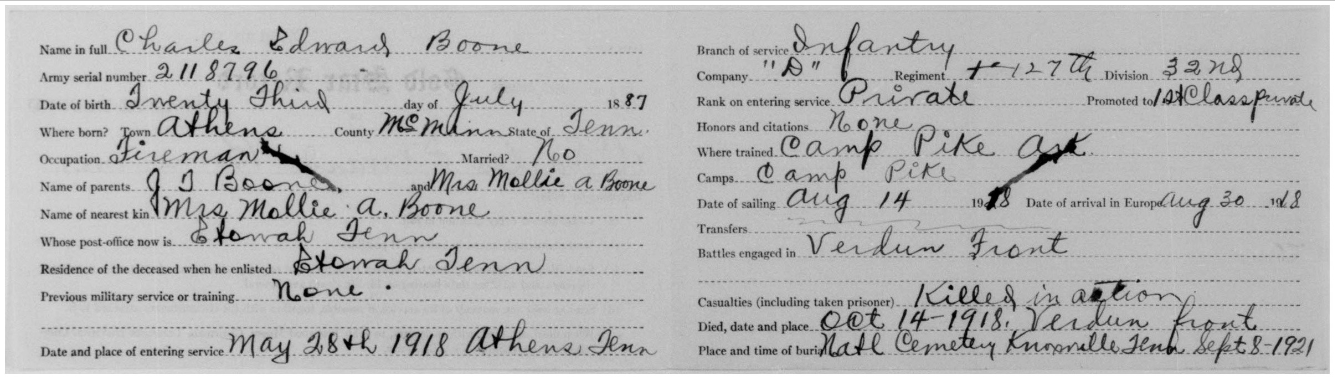 Name in full Charles Edward Boone
Army serial number 2118796
Date of birth Twenty Third day of July 1887
Where born? Town Athens County McMinn State of Tenn.
Occupation Fireman Married? No
Name of parents J T Boone and Mrs Mollie A Boone
Name of nearest kin Mrs Mollie A. Boone
Whose post-office now is Etowah Tenn
Residence of the deceased when he enlisted Etowah Tenn
Previous military service or training None.
Date and place of entering service May 28th 1918 Athens Tenn
Branch of service Infantry
Company "D" Regiment 127th Division 32nd
Rank on entering service Private Promoted to 1st Class private
Honors and citations None
Where trained Camp Pike Ark.
Camps Camp Pike
Date of sailing Aug 14 1918 Date of arrival in Europe Aug 30 1918
Transfers
Battles engaged in Verdun Front
Casualties (including taken prisoner) Killed in action
Died, date and place Oct 14-1918. Verdun front
Place and time of burial Natl Cemetery Knoxville Tenn Sept 8-1921